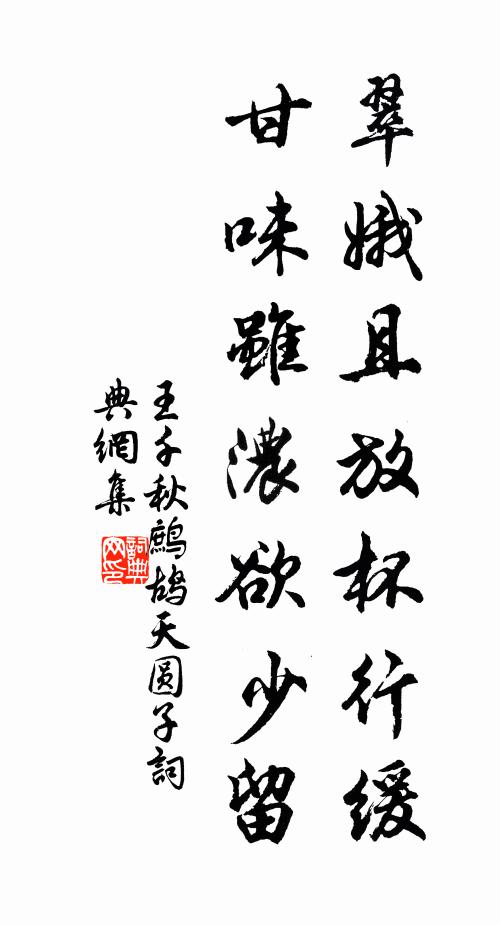 翠娥且放杯行緩
甘味雖濃欲少留
王千秋鷓鴣天圓子詞
典網集
詞典網印